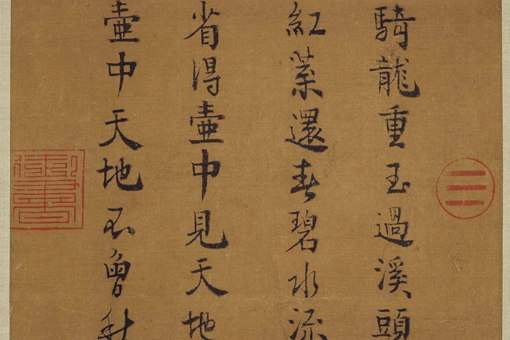 騎龍重玉過溪頭
紅葉還春碧水流
省得壺中見天地
壺中天地不曾秋